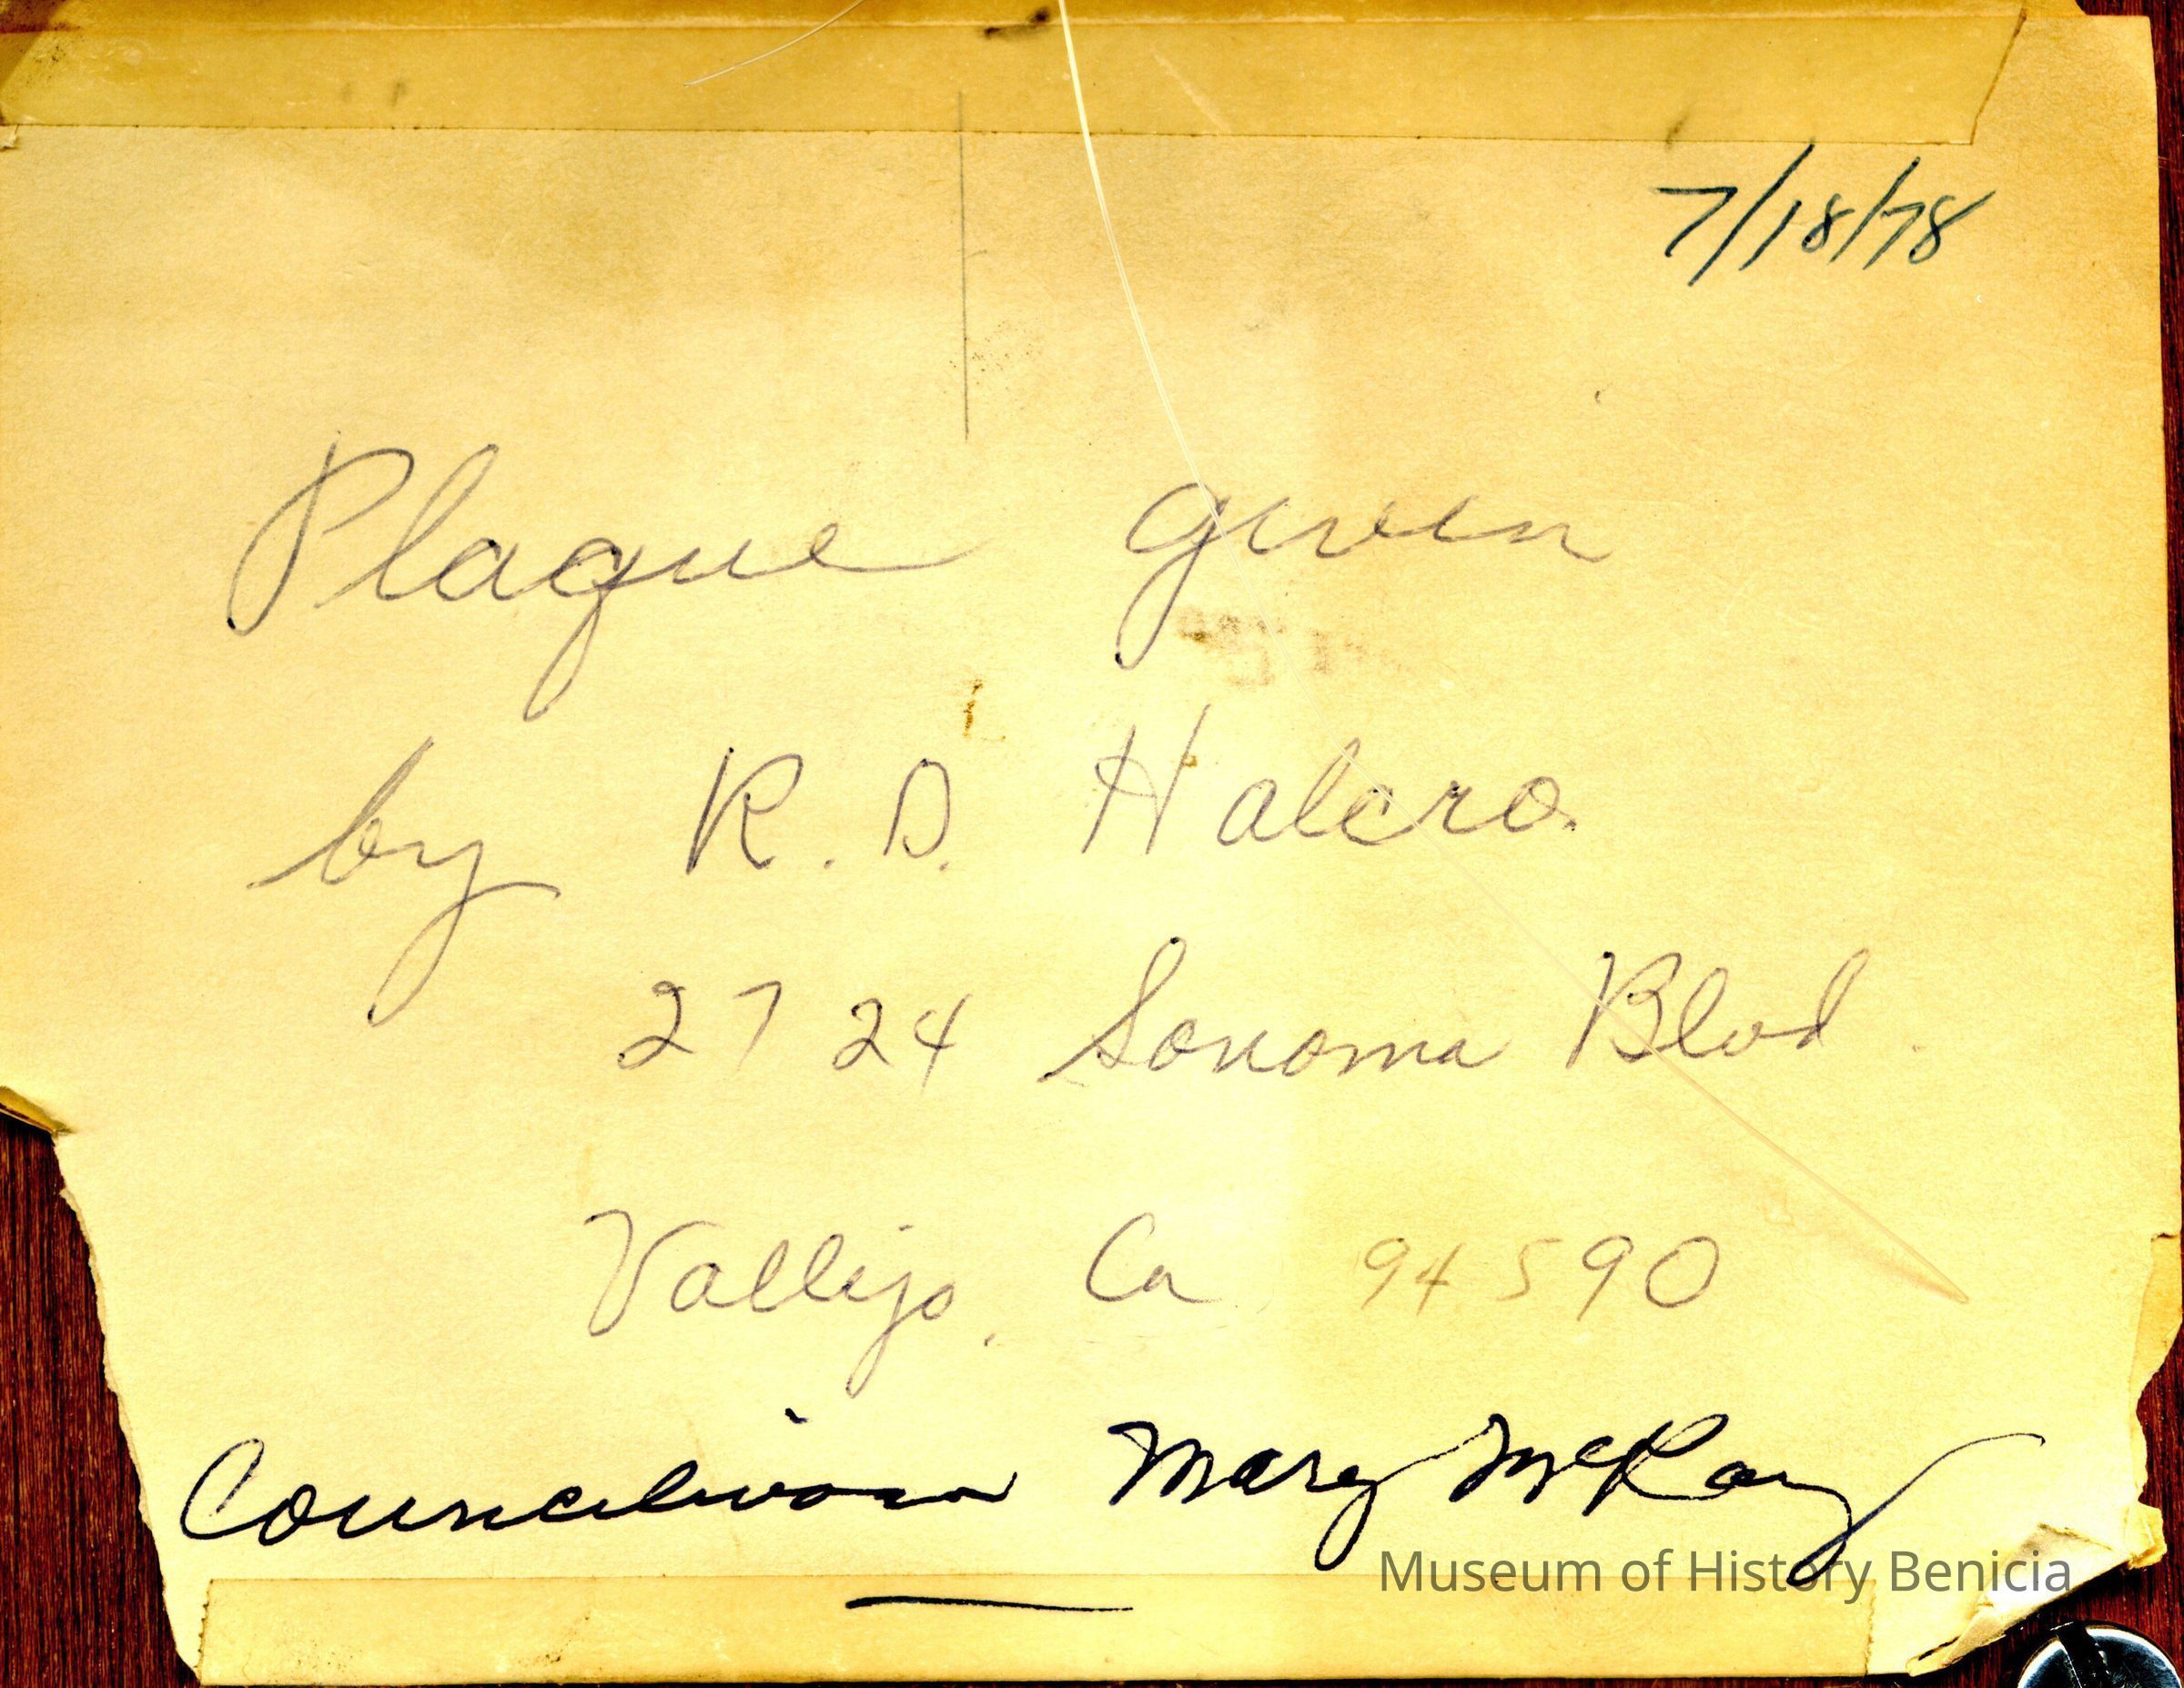 7/18/78
Plaque given
by R. D. Halcro.
2724 Sonoma Blvd.
Vallejo, Ca 94590
Councilwoman Mary McKay
Museum of History Benicia